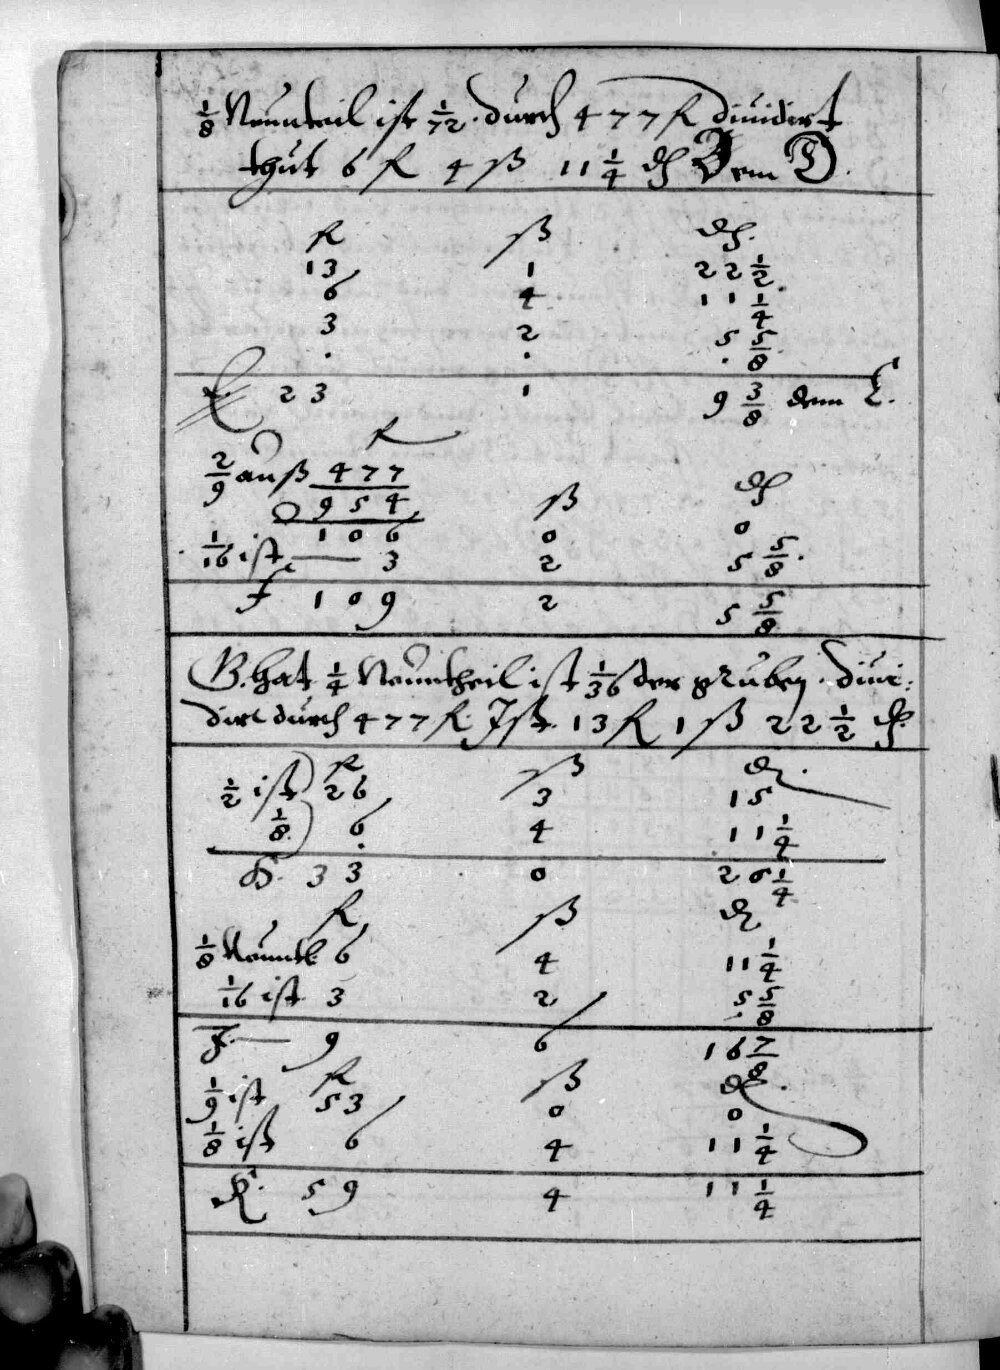 1/8 Neunteil ist 1/72. durch 477 R dividirt
thut 6 R 4 ß 11 1/4 ₰ Dem D.
R ß ₰.
13 1 22 1/2
6 4 11 1/4
3 2 5 5/8
. . .
E 23 1 9 3/8 dem E.
R
2/9 auß 477
954 ß ₰
106 0 0
1/16 ist 3 2 5 5/8.
F 109 2 5 5/8
G. hat 1/4 Neuntheil ist 1/36 der gruben. divi:
dirt durch 477 R. Ist. 13 R 1 ß 22 1/2 ₰.
R ß ₰.
1/2 ist) 26 3 15
1/8.) 6 4 11 1/4
H. 33 0 26 1/4
R ß ₰
1/8 Neuntl. 6 4 11 1/4
1/16 ist 3 2 5 5/8
J. 9 6 16 7/8
R ß ₰.
1/9 ist 53 0 0
1/8 ist 6 4 11 1/4
K. 59 4 11 1/4